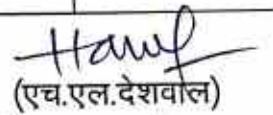 (एच.एल.देशवाल)